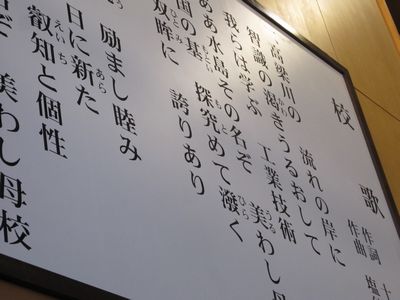 校歌
作詞
作曲 塩
高梁川の 流れの岸に
智識の渇きうるおして
我らは学ぶ 工業技術
ああ水島その名ぞ 美わし
国の基 探究めて 溌く
双眸に 誇りあり
励まし睦み
日に新た
叡知と個性
ぞ 美わし母校